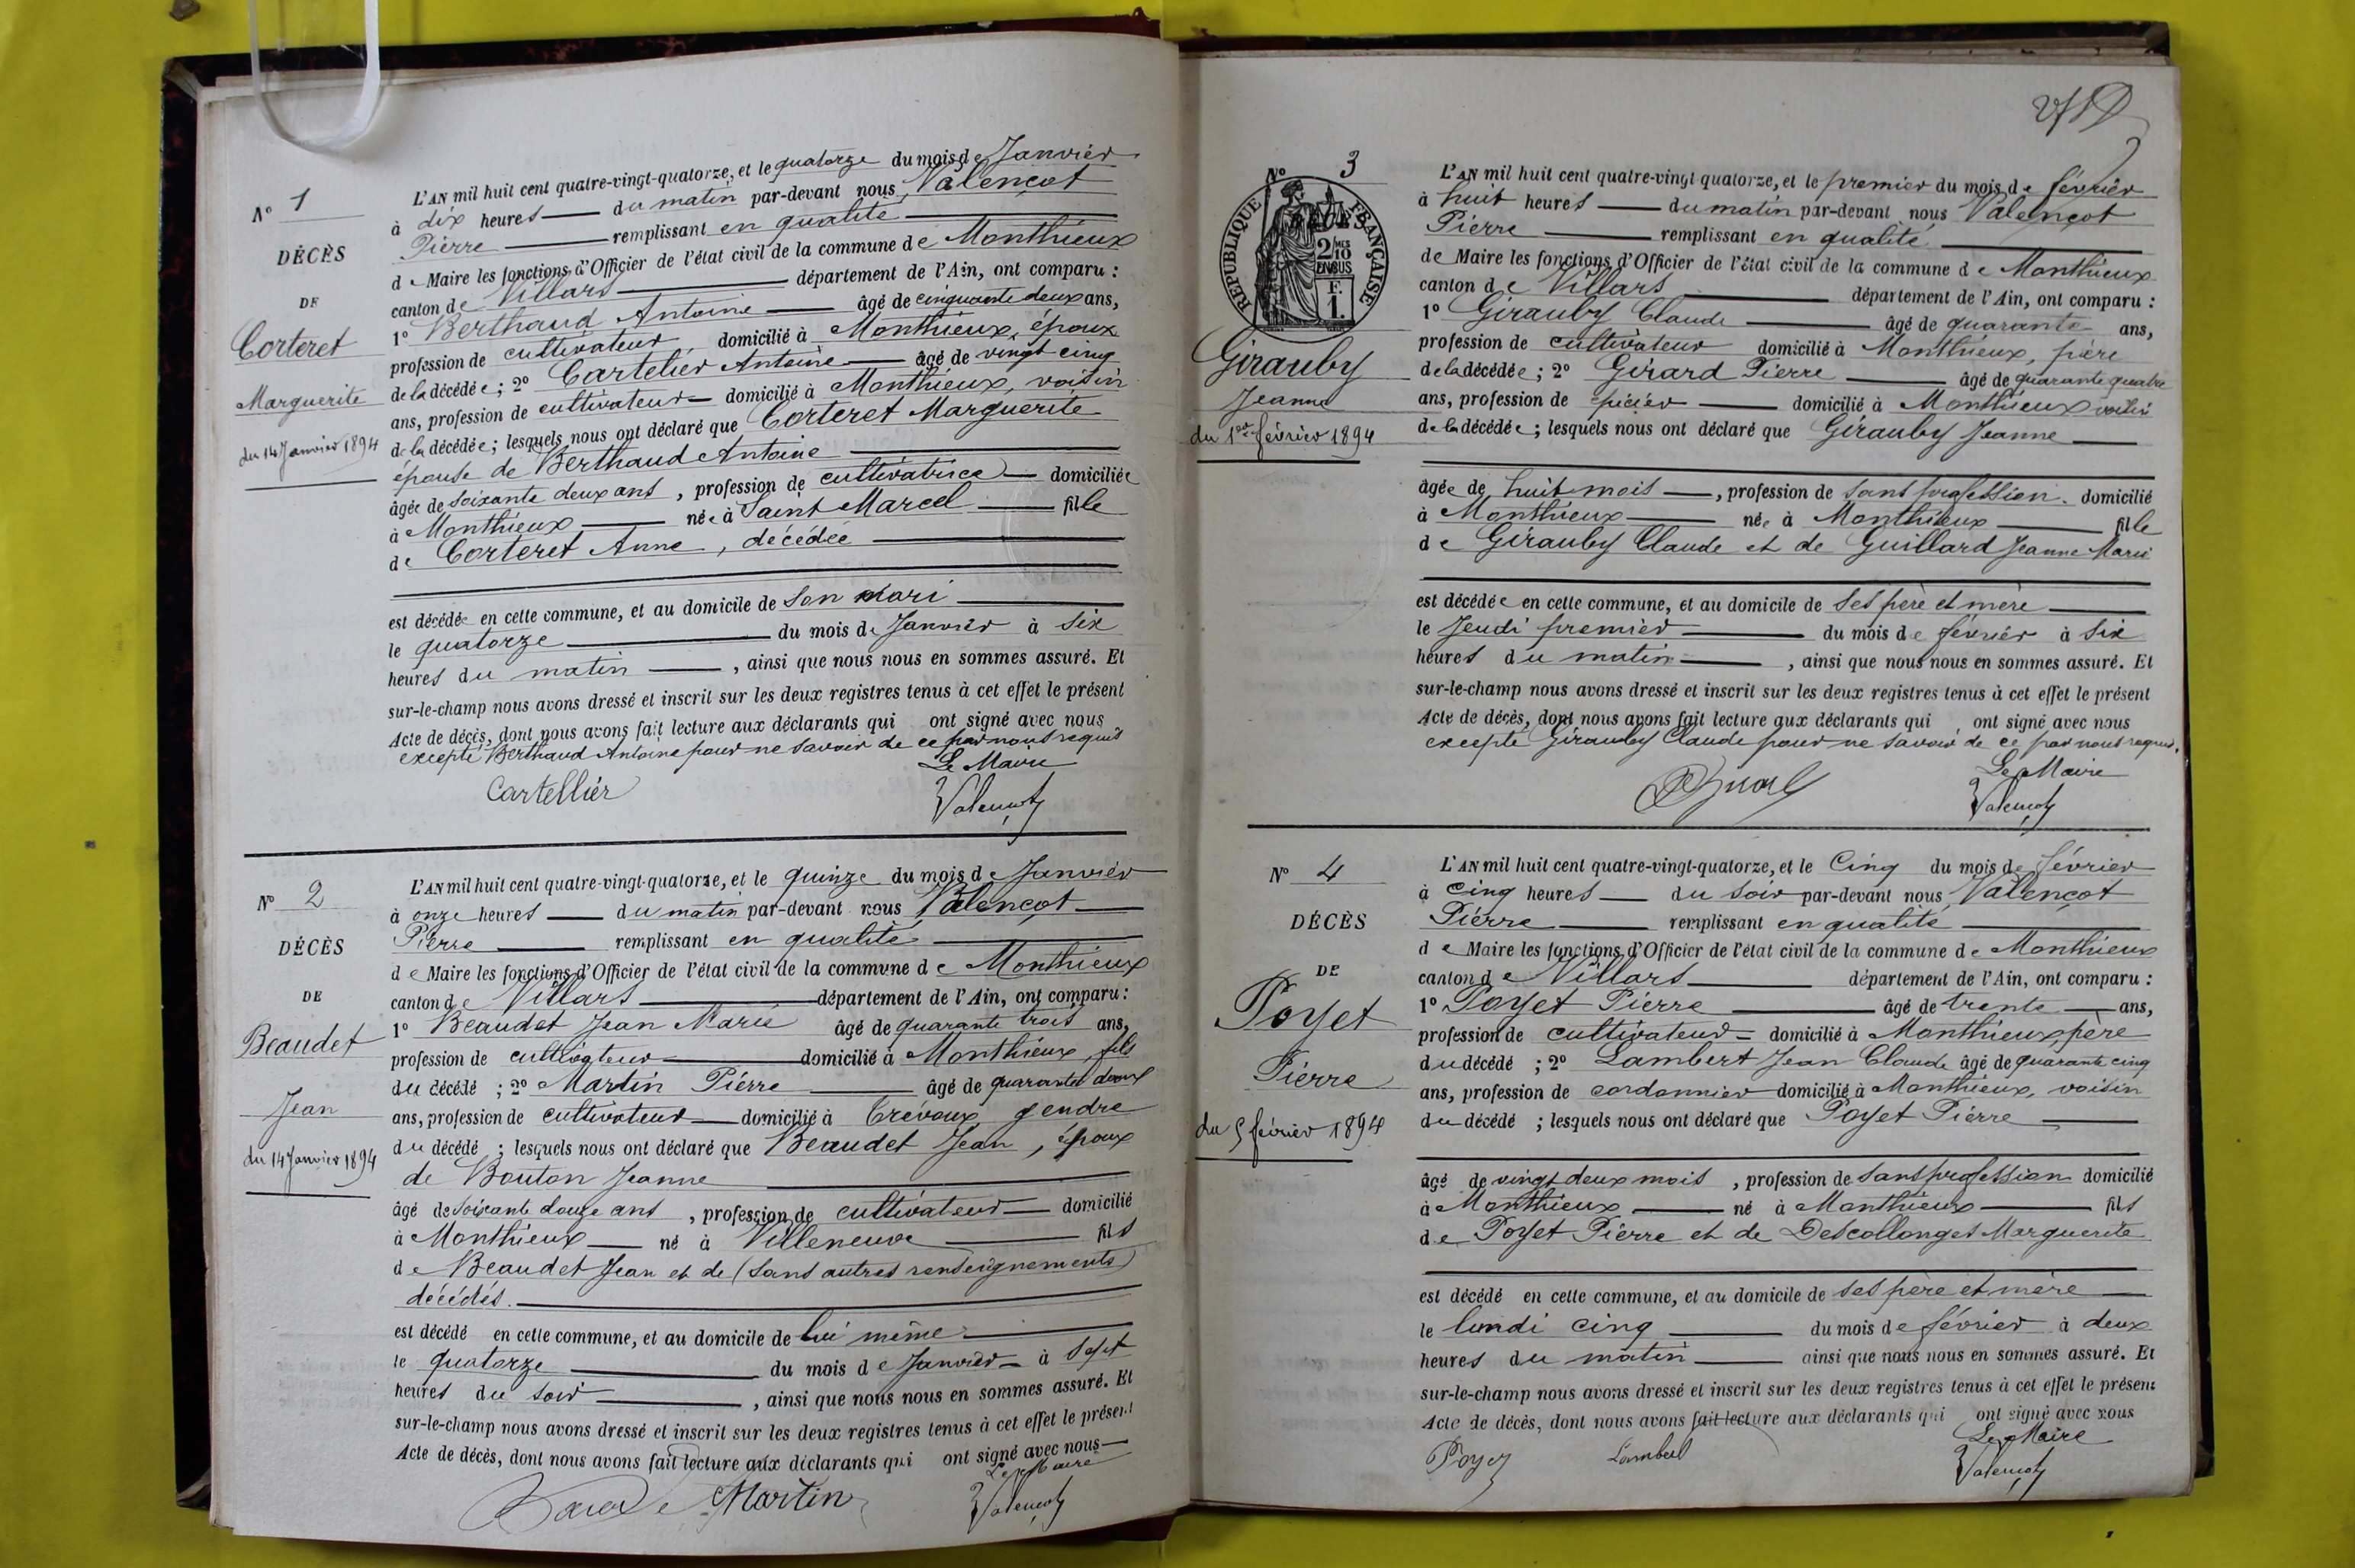 N° 1
DÉCÈS
DE
Corteret
Marguerite
du 14 Janvier 1894
L'AN mil huit cent quatre-vingt-quatorze, et le quatorze du mois de Janvier
à dix heures du matin par-devant nous Valençot
Pierre remplissant en qualité
de Maire les fonctions d'Officier de l'état civil de la commune de Monthieux
canton de Villars département de l'Ain, ont comparu :
1° Berthaud Antoine âgé de cinquante deux ans,
profession de cultivateur, domicilié à Monthieux, époux
de la décédée ; 2° Cartelier Antoine âgé de vingt cinq
ans, profession de cultivateur domicilié à Monthieux, voisin
de la décédée ; lesquels nous ont déclaré que Corteret Marguerite
épouse de Berthaud Antoine
âgée de soixante deux ans, profession de cultivatrice domiciliée
à Monthieux née à Saint Marcel fille
de Corteret Anne, décédée
est décédée en cette commune, et au domicile de son mari
le quatorze du mois de Janvier à six
heures du matin, ainsi que nous nous en sommes assuré. Et
sur-le-champ nous avons dressé et inscrit sur les deux registres tenus à cet effet le présent
Acte de décès, dont nous avons fait lecture aux déclarants qui ont signé avec nous
excepté Berthaud Antoine pour ne savoir de ce par nous requis
Le Maire
Cartellier
Valençot
N° 2
DÉCÈS
DE
Beaudet
Jean
du 14 Janvier 1894
L'AN mil huit cent quatre-vingt-quatorze, et le quinze du mois de Janvier
à onze heures du matin par-devant nous Valençot
Pierre remplissant en qualité
de Maire les fonctions d'Officier de l'état civil de la commune de Monthieux
canton de Villars département de l'Ain, ont comparu :
1° Beaudet Jean Marie âgé de quarante trois ans,
profession de cultivateur domicilié à Monthieux, fils
du décédé ; 2° Martin Pierre âgé de quarante deux
ans, profession de cultivateur domicilié à Trévoux gendre
du décédé ; lesquels nous ont déclaré que Beaudet Jean, époux
de Bouton Jeanne
âgé de soixante douze ans, profession de cultivateur domicilié
à Monthieux né à Villeneuve fils
de Beaudet Jean et de (sans autres renseignements)
décédés.
est décédé en cette commune, et au domicile de lui même
le quatorze du mois de Janvier à sept
heures du soir, ainsi que nous nous en sommes assuré. Et
sur-le-champ nous avons dressé et inscrit sur les deux registres tenus à cet effet le présent
Acte de décès, dont nous avons fait lecture aux déclarants qui ont signé avec nous
Le Maire
Martin
Valençot
N° 3
RÉPUBLIQUE FRANÇAISE
2/10 EN SUS
F.
1.
Girauby
Jeanne
du 1er février 1894
L'AN mil huit cent quatre-vingt quatorze, et le premier du mois de février
à huit heures du matin par-devant nous Valençot
Pierre remplissant en qualité
de Maire les fonctions d'Officier de l'état civil de la commune de Monthieux
canton de Villars département de l'Ain, ont comparu :
1° Girauby Claude âgé de quarante ans,
profession de cultivateur domicilié à Monthieux, père
de la décédée ; 2° Gérard Pierre âgé de quarante quatre
ans, profession de épicier domicilié à Monthieux voisin
de la décédée ; lesquels nous ont déclaré que Girauby Jeanne
âgée de huit mois, profession de sans profession. domicilié
à Monthieux née à Monthieux fille
de Girauby Claude et de Guillard Jeanne Marie
est décédée en cette commune, et au domicile de ses père et mère
le Jeudi premier du mois de février à six
heures du matin, ainsi que nous nous en sommes assuré. Et
sur-le-champ nous avons dressé et inscrit sur les deux registres tenus à cet effet le présent
Acte de décès, dont nous avons fait lecture aux déclarants qui ont signé avec nous
excepté Girauby Claude pour ne savoir de ce par nous requis.
Le Maire
Valençot
N° 4
DÉCÈS
DE
Poyet
Pierre
du 5 février 1894
L'AN mil huit cent quatre-vingt-quatorze, et le Cinq du mois de février
à cinq heures du soir par-devant nous Valençot
Pierre remplissant en qualité
de Maire les fonctions d'Officier de l'état civil de la commune de Monthieux
canton de Villars département de l'Ain, ont comparu :
1° Poyet Pierre âgé de trente ans,
profession de cultivateur domicilié à Monthieux, père
du décédé ; 2° Lambert Jean Claude âgé de quarante cinq
ans, profession de cordonnier domicilié à Monthieux, voisin
du décédé ; lesquels nous ont déclaré que Poyet Pierre
âgé de vingt deux mois, profession de sans profession domicilié
à Monthieux né à Monthieux fils
de Poyet Pierre et de Descollonges Marguerite
est décédé en cette commune, et au domicile de ses père et mère
le lundi cinq du mois de février à deux
heures du matin ainsi que nous nous en sommes assuré. Et
sur-le-champ nous avons dressé et inscrit sur les deux registres tenus à cet effet le présent
Acte de décès, dont nous avons fait lecture aux déclarants qui ont signé avec nous
Le Maire
Poyet
Lambert
Valençot